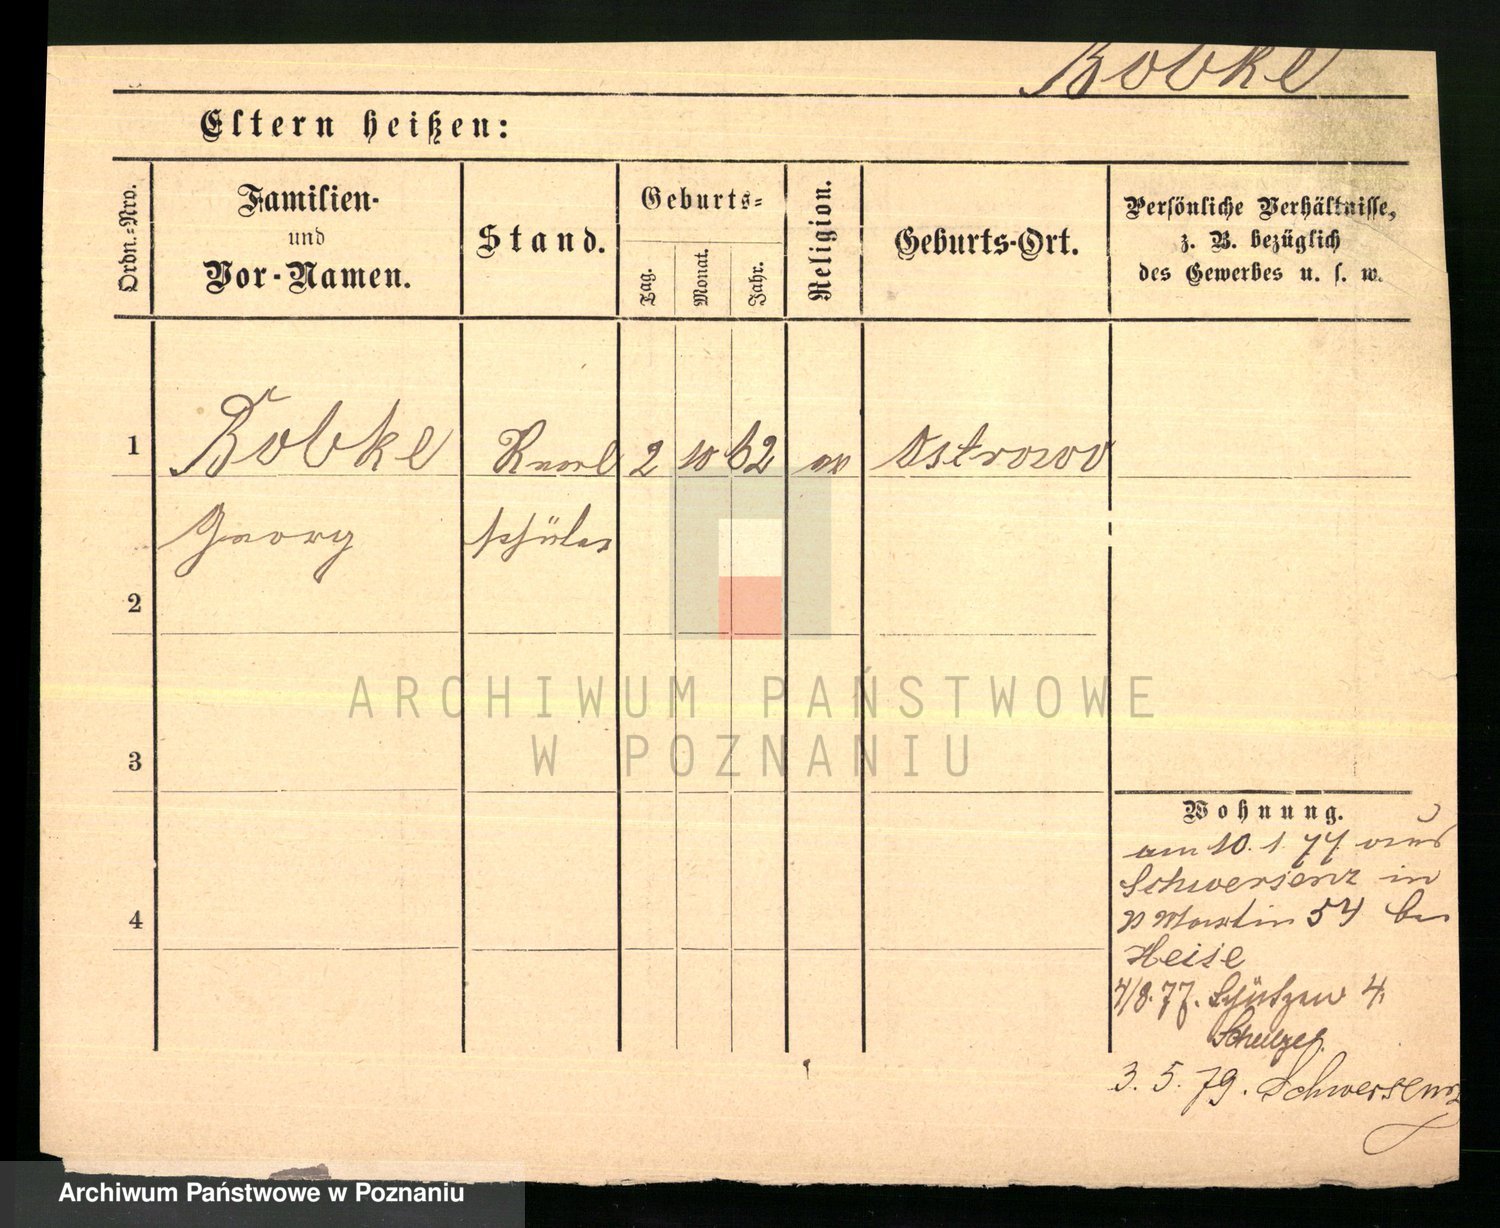 Bobke
Eltern heißen:
Ordn.-Nro.
Familien-
und
Vor-Namen.
Stand.
Geburts-
Tag.
Monat.
Jahr.
Religion.
Geburts-Ort.
Persönliche Verhältnisse,
z. B. bezüglich
des Gewerbes u. s. w.
1 Bobke 2 10 62 ev Ostrowo
Georg Schüler
2
3
4
ARCHIWUM PAŃSTWOWE
W POZNANIU
Wohnung.
am 10. 1. 77 aus
Schwersenz in
Martin 54 bei
Heise
4/8. 77. Schützen 4.
3. 5. 79. Schwersenz
Archiwum Państwowe w Poznaniu